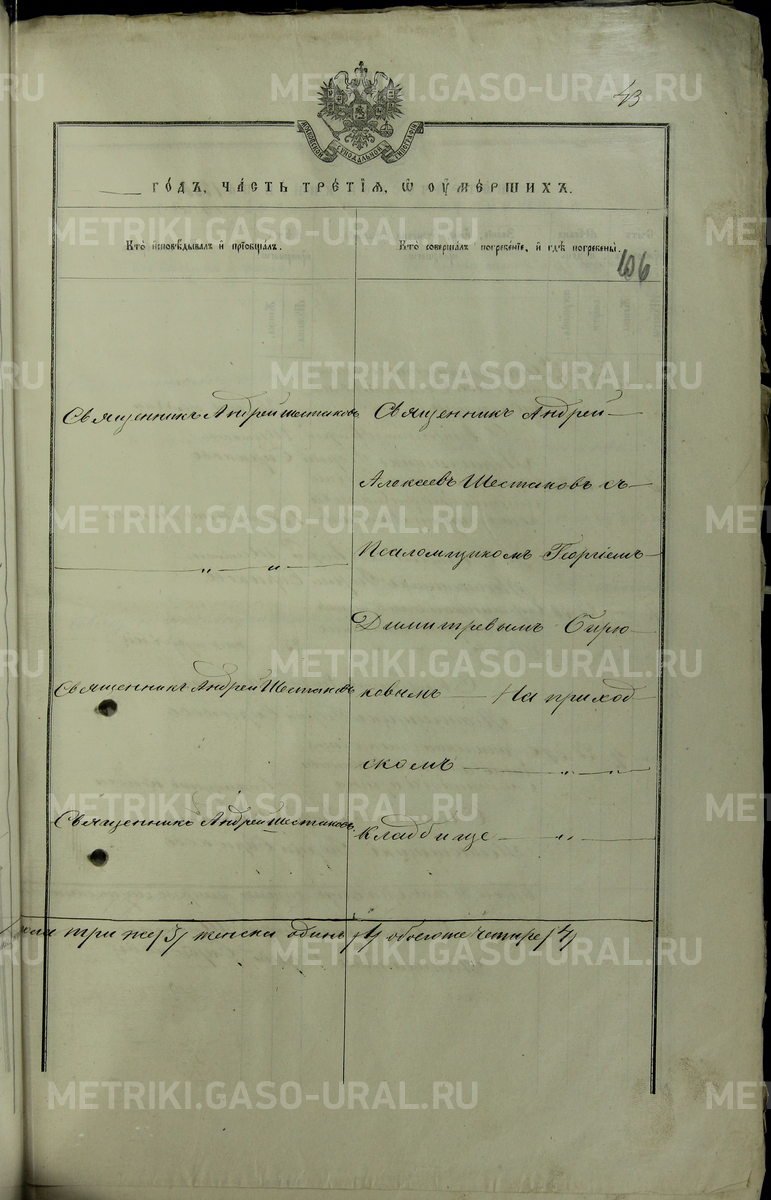 METRIKI.GASO-URAL.RU
43
МОСКОВСКОЙ СѴНОДАЛЬНОЙ ТИПОГРАФІИ
ГОДЪ, ЧАСТЬ ТРЕТІЯ, Ѡ ОУМЕРШИХЪ.
Кто исповѣдывалъ и пріобщалъ.
Кто совершалъ погребеніе, и гдѣ погребены.
106
Священникъ Андрей Шестаковъ
Священникъ Андрей
Алексеевъ Шестаковъ съ
Псаломщикомъ Георгіемъ
„ „
Димитревымъ Бирю
Священникъ Андрей Шестаковъ
ковымъ — На приход
скомъ — „ „
Священникъ Андрей Шестаковъ
кладбище — „
три же /3/ женска одинъ /1/ обоего же четыре /4/